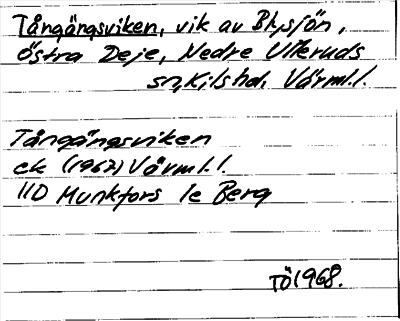 Tångängsviken, vik av Blysjön,
östra Deje, Nedre Ulleruds
sn, Kils hd. Värml.l.
Tångängsviken
ek (1962) Värml.l.
11D Munkfors 1e Berg
TÖ 1968.